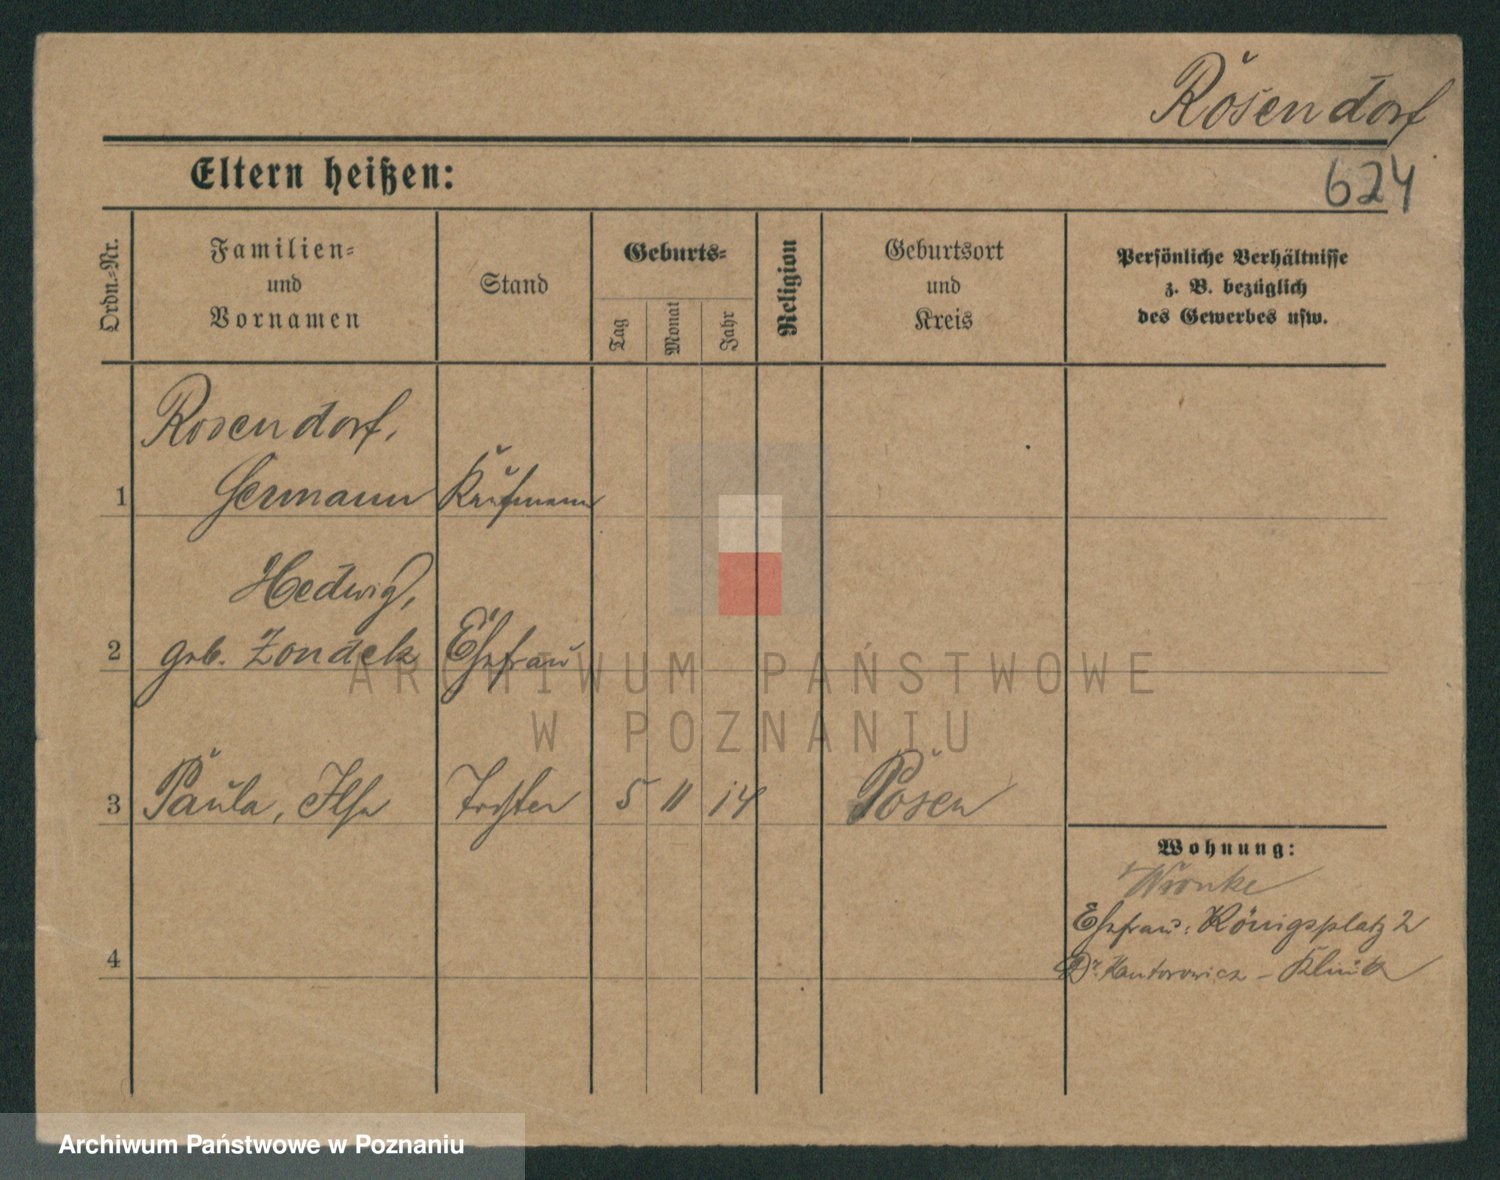 Rosendorf
Eltern heißen:
624
Ordn.-Nr.
Familien-
und
Vornamen
Stand
Geburts-
Tag
Monat
Jahr
Religion
Geburtsort
und
Kreis
Persönliche Verhältnisse
z. B. bezüglich
des Gewerbes usw.
Rosendorf,
1 Hermann Kaufmann
Hedwig,
2 geb. Zondek Ehefrau
ARCHIWUM PAŃSTWOWE
W POZNANIU
3 Paula, Ilse Tochter 5 11 14 Posen
Wohnung:
Wronke
Ehefrau: Königsplatz 2
4
Dr. Kantorowicz - Klinik
Archiwum Państwowe w Poznaniu